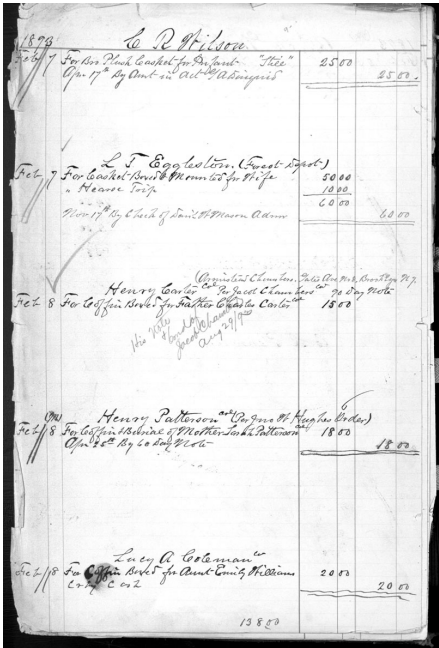 1893 C R Wilson
Feb 7 For Bro Plush Casket for Infant "Shee" 25 00
Apr 17th By Amt in act Assigned 25 00
L T Eggleston. (Forest-Depot)
Feb 7 For Casket Boxed & Mounted for Wife 50 00
" Hearse Trip 10 00
60 00
Nov 17th By Check of David W Mason Admr 60 00
(Armistead Chambers, Gates Ave No. Brooklyn N.Y.
Henry Carter Col Per Jacob Chambers Col 90 Day Note
Feb 8 For Coffin Boxed for Father Charles Carter Col 15 00
His Note
Jacob Chambers
Aug 29/96
Henry Patterson col (Per Jno W Hughes Order)
Feb 8 For Coffin & Burial of Mother Sarah Patterson col 18 00
Apr 25th By 60 Day Note 18 00
Lucy A Coleman Col
Feb 8 For Coffin Boxed for Aunt Emily Williams 20 00
Cr By Cash 20 00
138 00